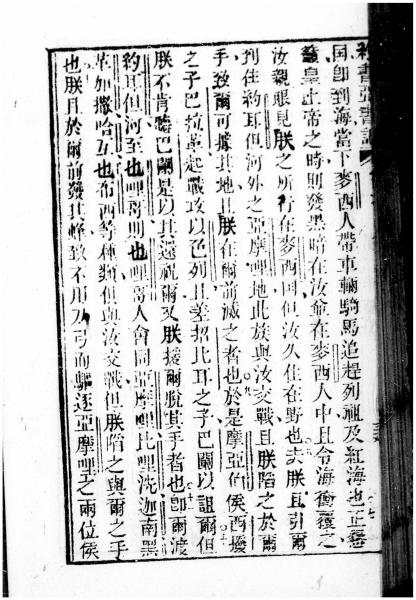 約書亞書記
國卽到海當下麥西人帶車輛騎馬追趕列祖及紅海也七正懇
籲皇上帝之時則發黑暗在汝在麥西人中且令海衝覆之
汝親眼見朕之所行在麥西國但汝久住在野也夫朕且引爾
到住約耳但河外之亞摩哩地此族與汝交戰且朕陷之於爾
手致爾可據其地且朕在爾前滅之者也於是摩亞伯侯西撥
之子巴拉革起戰攻以色列且差招比耳之子巴闌以詛爾但
朕不肯聽巴闌是以其還祝爾又朕援爾脫其手者也十一卽爾渡
約耳但河至也哩哥則也哩哥人會同亞摩哩比哩洗迦南黑
革加撒哈互也布西等種類但與汝交戰但朕陷之與爾之手
也朕且於爾前發其蜂致不用刀弓而驅逐亞摩哩之兩位侯